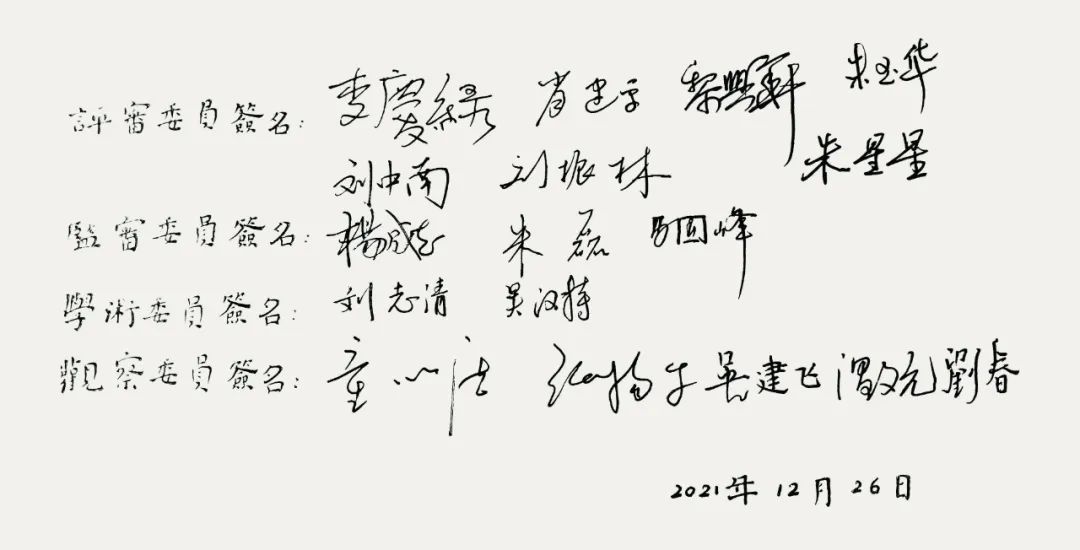 評審委員簽名: 李慶綠 肖建宇 黎興軒 朱玉华
刘中南 刘振林 朱星星
監審委員簽名: 楊成志 朱磊 马国峰
學術委員簽名: 刘志清 吴汉特
觀察委員簽名: 童心 吴建飞 劉春
2021年12月26日